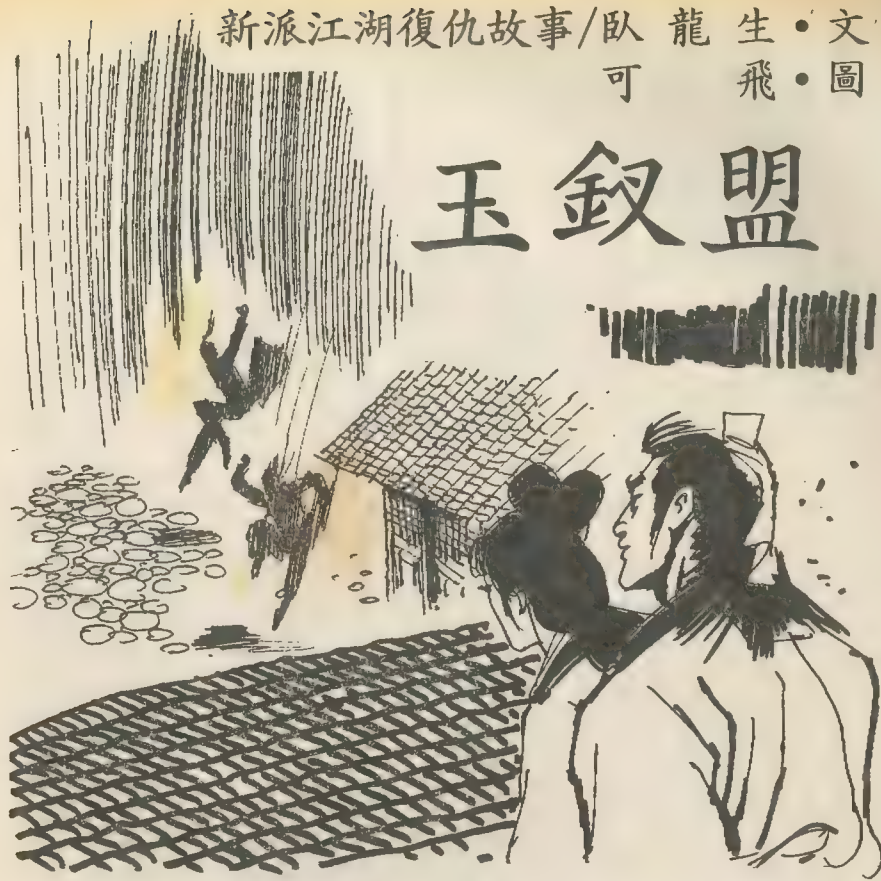 新派江湖復仇故事/臥龍生•文
可飛•圖
玉釵盟